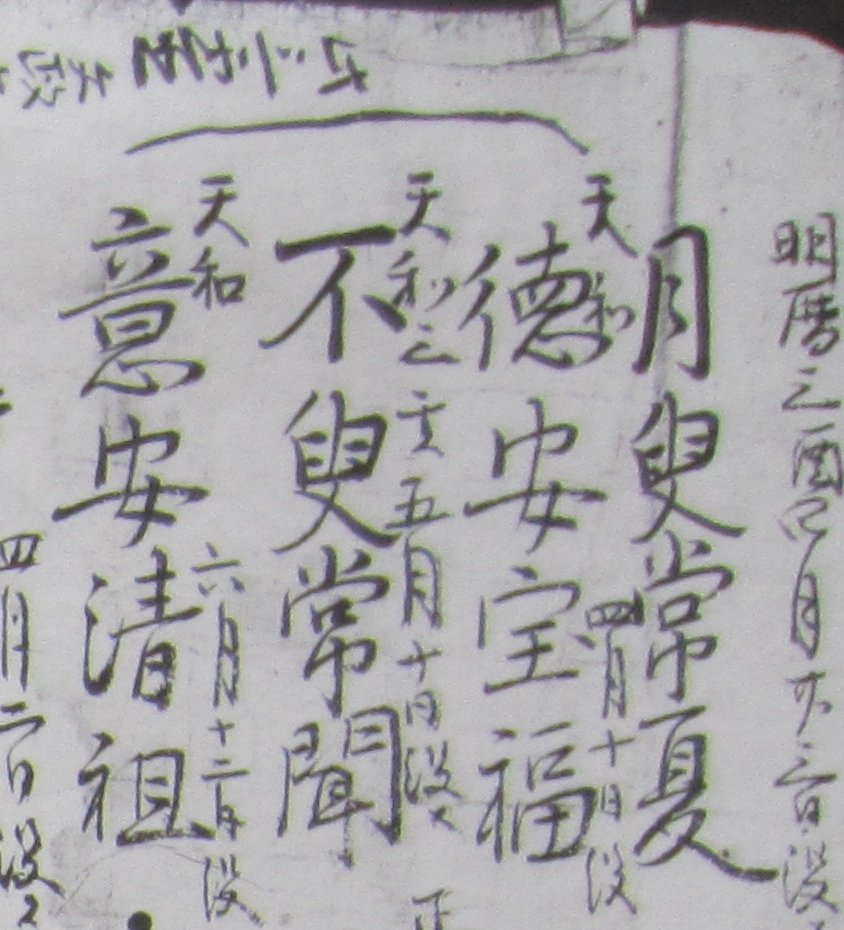 明暦三酉
月廿三日没
月叟常夏
天和
四月十日没
徳安宝福
天和三
五月十日没
不叟常聞
天和
六月十二日没
意安清祖
四月二日没